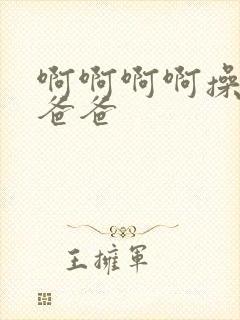 啊啊啊啊操
爸爸
王擁軍